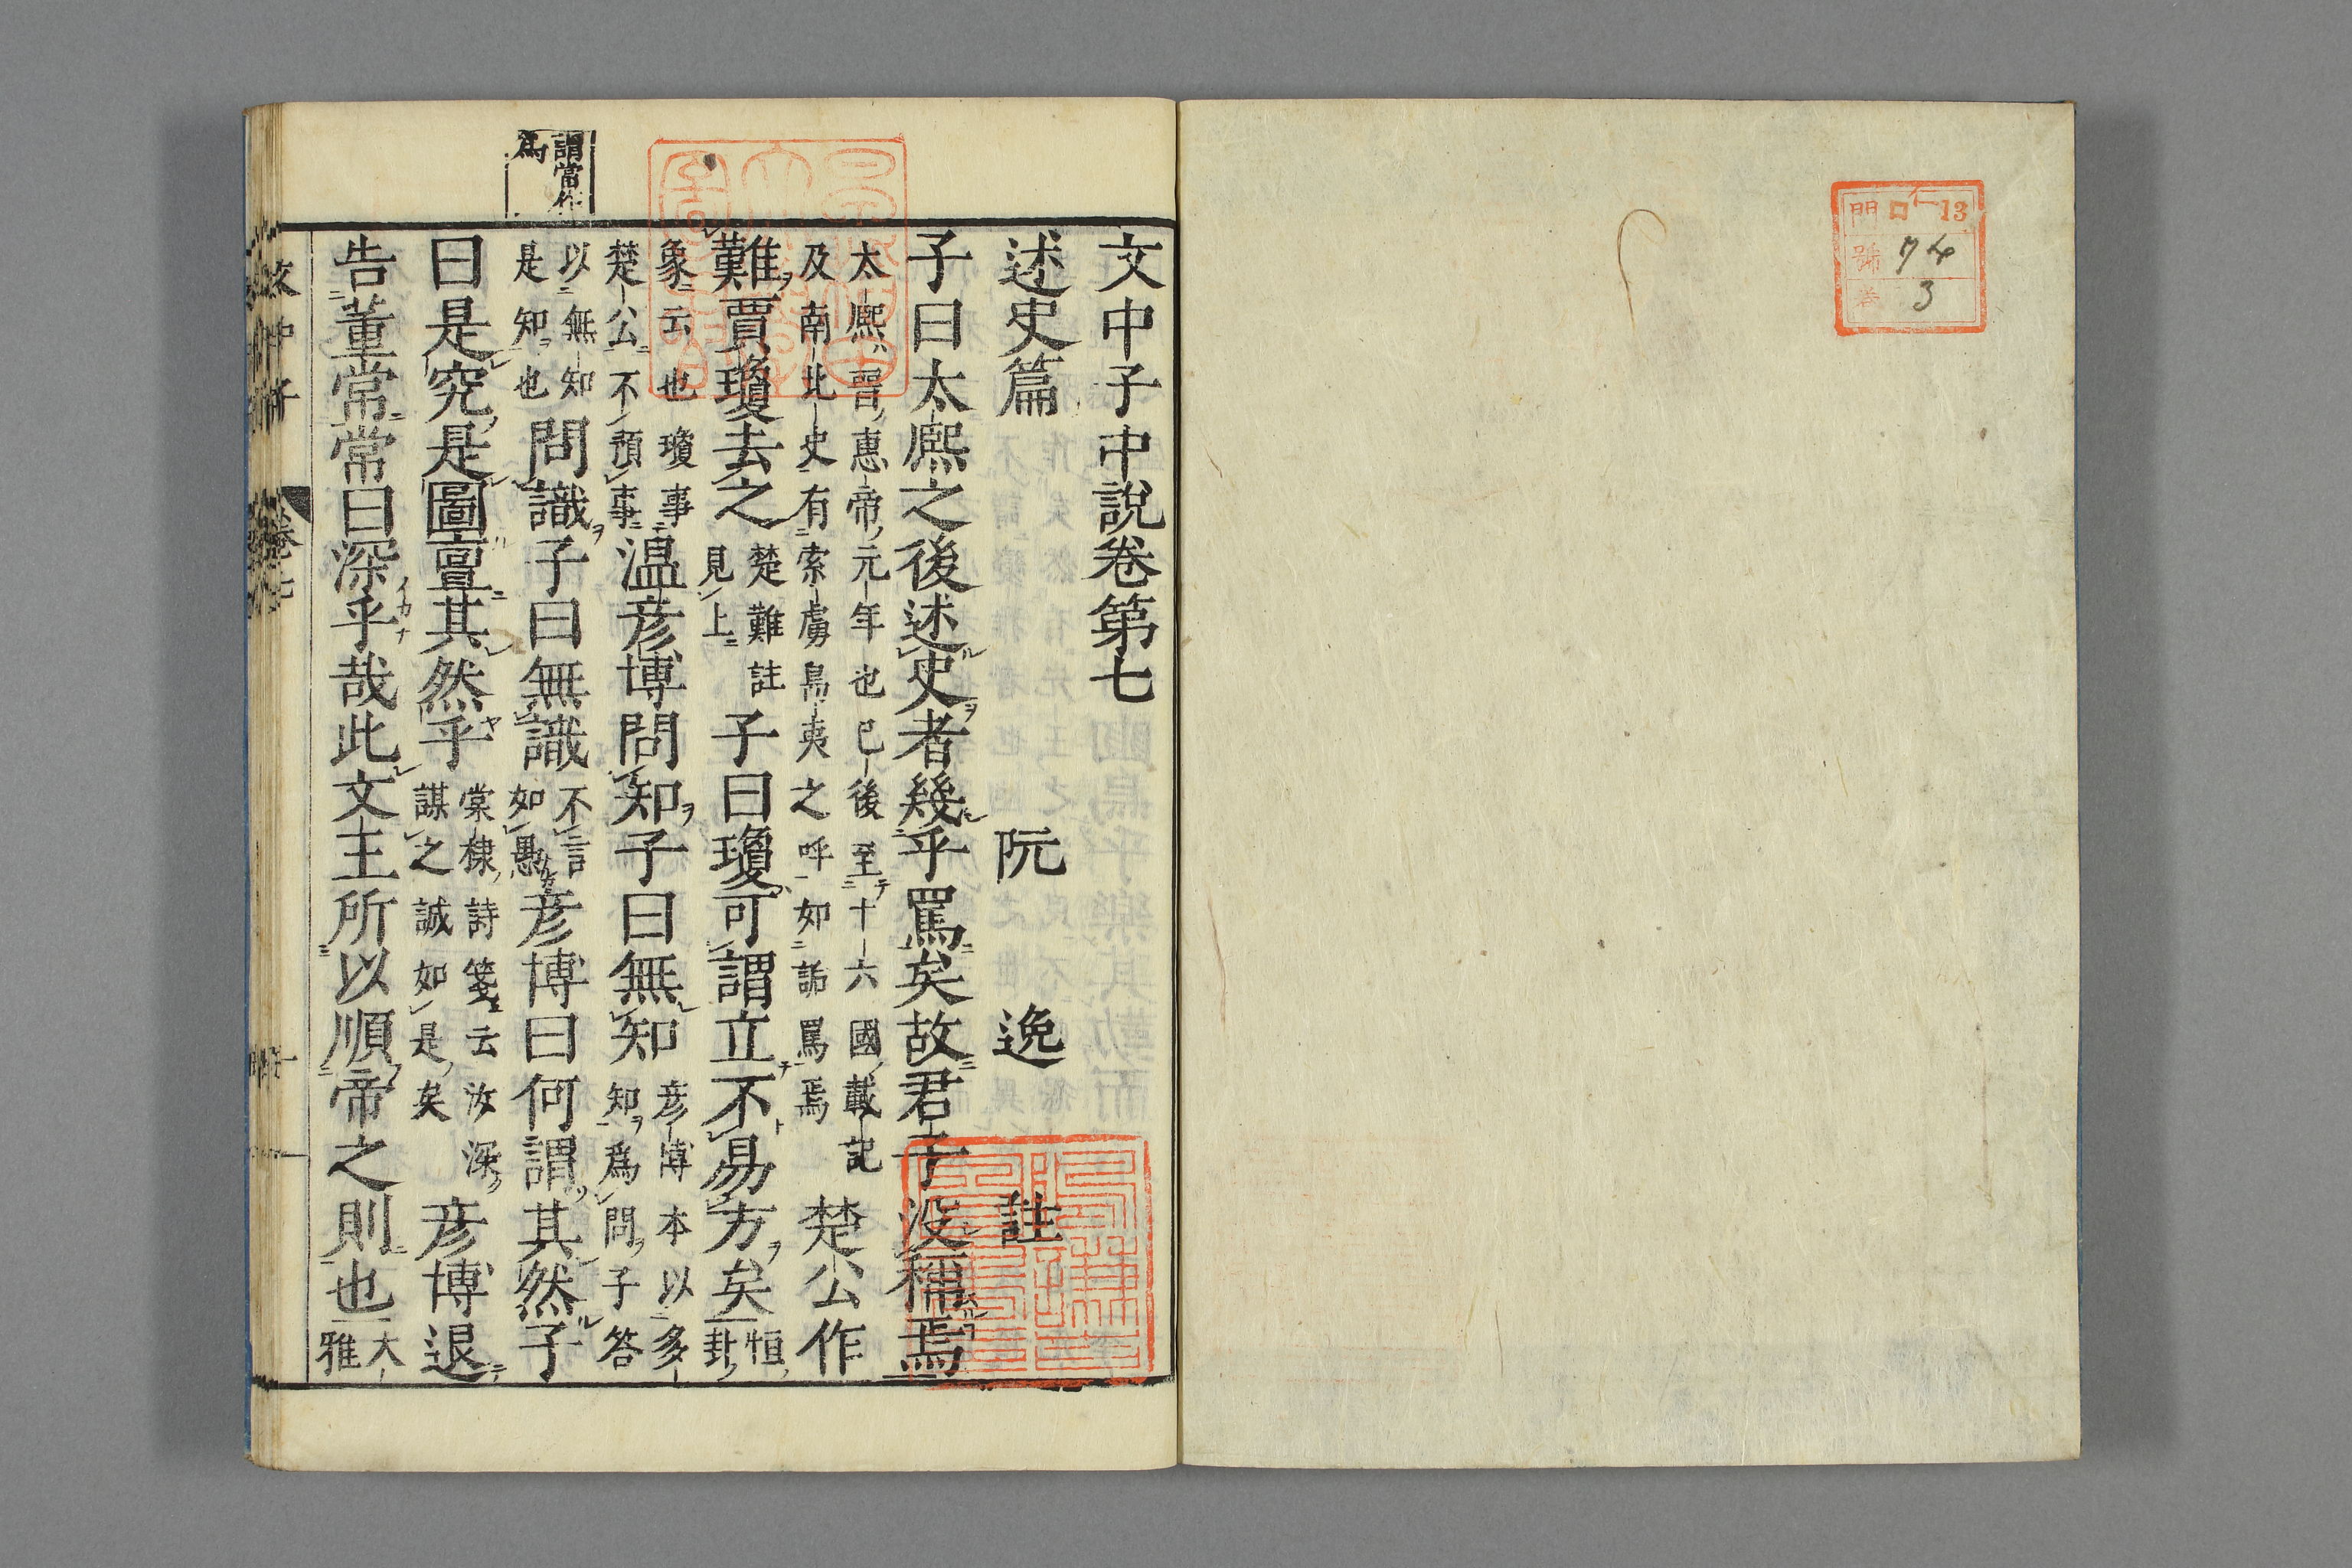 門 仁 13
號 74
卷 3
文中子中說卷第七
述史篇 阮 逸 註
子曰太熙之後述史者幾乎罵矣故君子没稱焉
太熙晋惠帝元年也已後至十六國載記
及南北史有索虜島夷之呼如詬罵焉
楚公作
難賈瓊去之
楚難註
見上
子曰瓊可謂立不易方矣
恒
卦
象云也瓊事
楚公不預事
温彦博問知子曰無知
彦博本以多
知爲問子答
以無知
是知也
問識子曰無識
不言
如愚
彦博曰何謂其然子
曰是究是圖亶其然乎
棠棣詩箋云汝深
謀之誠如是矣
彦博退
告董常常曰深乎哉此文王所以順帝之則也
大
雅
謂當作
爲
文中子 卷七 一